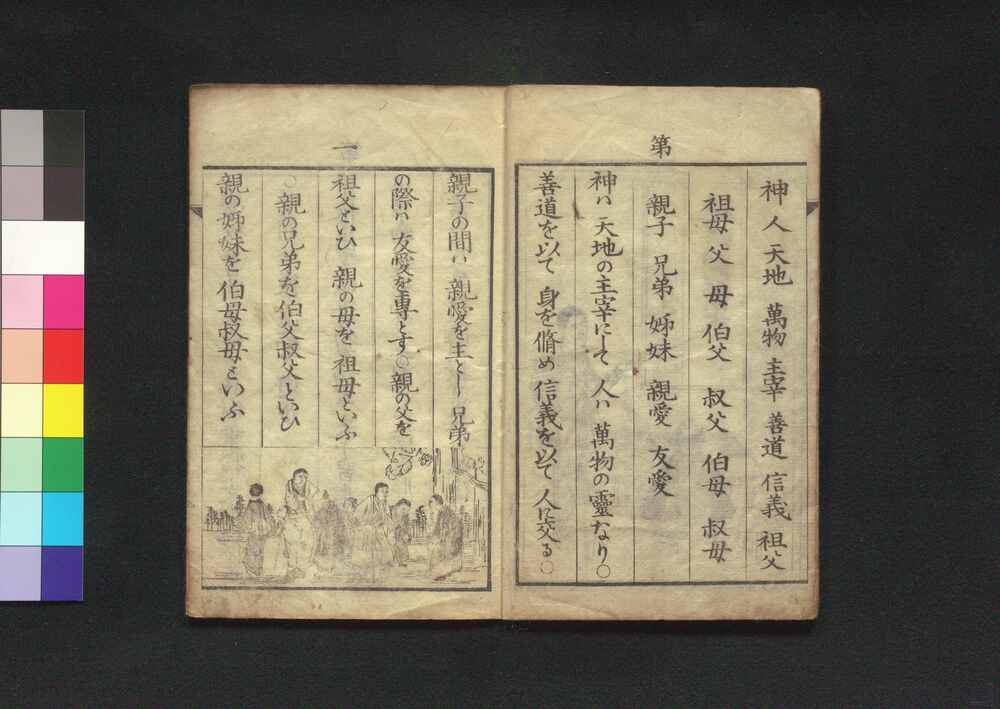 第一
神人 天地 萬物 主宰 善道 信義 祖父
祖母 父 母 伯父 叔父 伯母 叔母
親子 兄弟 姊妹 親愛 友愛
神ハ 天地の主宰にして 人ハ 萬物の靈なり○
善道を以て 身を脩め 信義を以て 人に交る○
親子の間ハ 親愛を主とし 兄弟
の際ハ 友愛を專とす○親の父を
祖父といひ 親の母を 祖母といふ
○親の兄弟を伯父叔父といひ
親の姊妹を 伯母叔母といふ